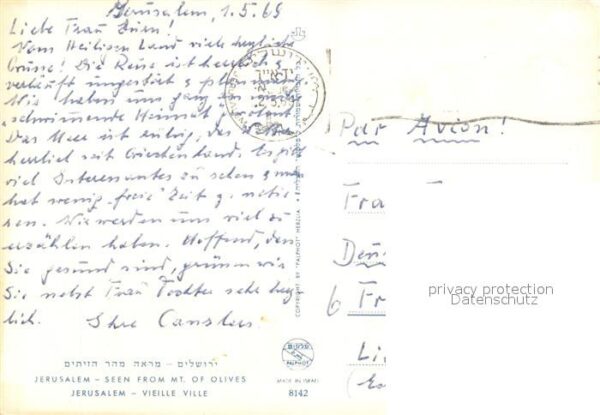 Jerusalem, 1.5.69
Liebe Frau
Vom Heiligen Land viele herzliche
Grüsse! Die Reise ist herrlich &
verläuft ungestört & planmä
Wir haben uns ganz an
schwimmende Heimat gewöhnt.
Das Meer ist ruhig, das
herrlich seit Griechenland. Es gibt
viel Interessantes zu sehen & man
hat wenig "freie" Zeit z.
ren. Wir werden uns viel zu
erzählen haben. Hoffend, dass
Sie gesund sind, grüssen wir
Sie nebst Frau Tochter sehr herz
lich. Ihre
Par Avion!
Fra
6 Fr
Li
privacy protection
Datenschutz
COPYRIGHT BY "PALPHOT" HERZLIA
PALPHOT
MADE IN ISRAEL
8142
ירושלים – מראה מהר הזיתים
JERUSALEM – SEEN FROM MT. OF OLIVES
JERUSALEM – VIEILLE VILLE